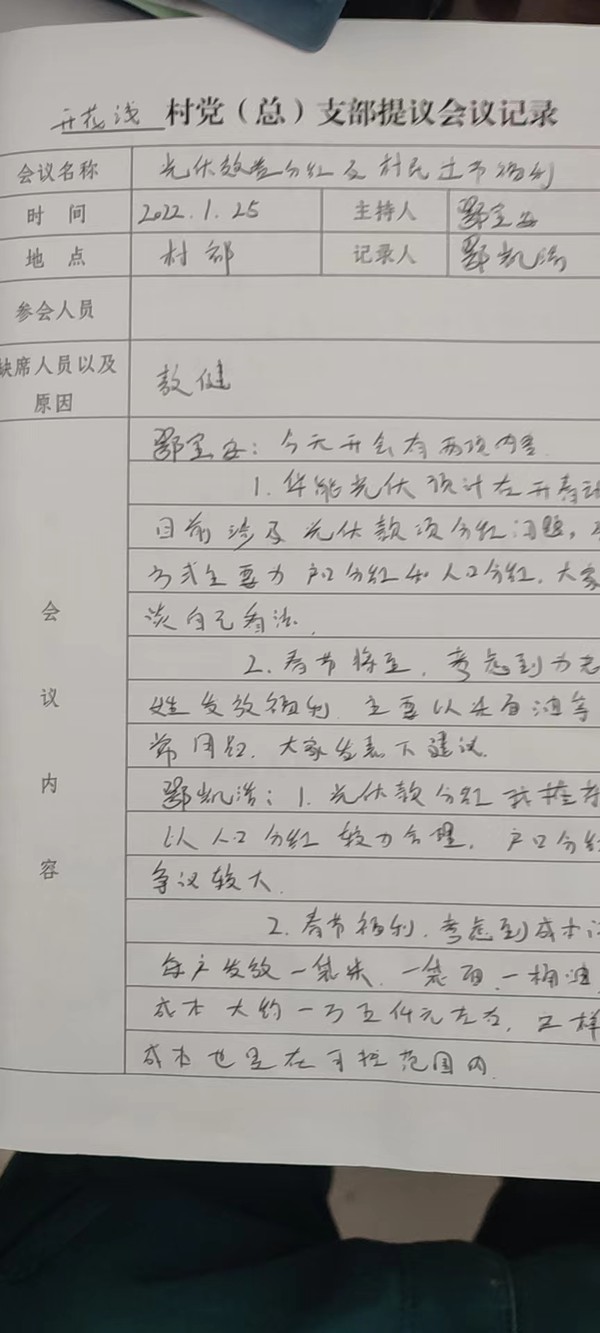 开花浅村党（总）支部提议会议记录
会议名称 光伏效益分红及村民过节福利
时 间 2022.1.25 主持人 鄂宝安
地 点 村部 记录人 鄂凯浩
参会人员
缺席人员以及原因 敖健
会议内容
鄂宝安：今天开会有两项内容.
1. 华能光伏预计在开春
目前涉及光伏款项分红问题，
方式主要为户口分红和人口分红，大家
谈自己看法.
2. 春节将至，考虑到为老
姓发放福利，主要以米面油等
常用品，大家发表下建议.
鄂凯浩：1. 光伏款分红我推荐
以人口分红较为合理，户口分红
争议较大.
2. 春节福利，考虑到成本
每户发放一袋米，一袋面，一桶油
成本大约一万五仟元左右，这样
成本也是在可控范围内.